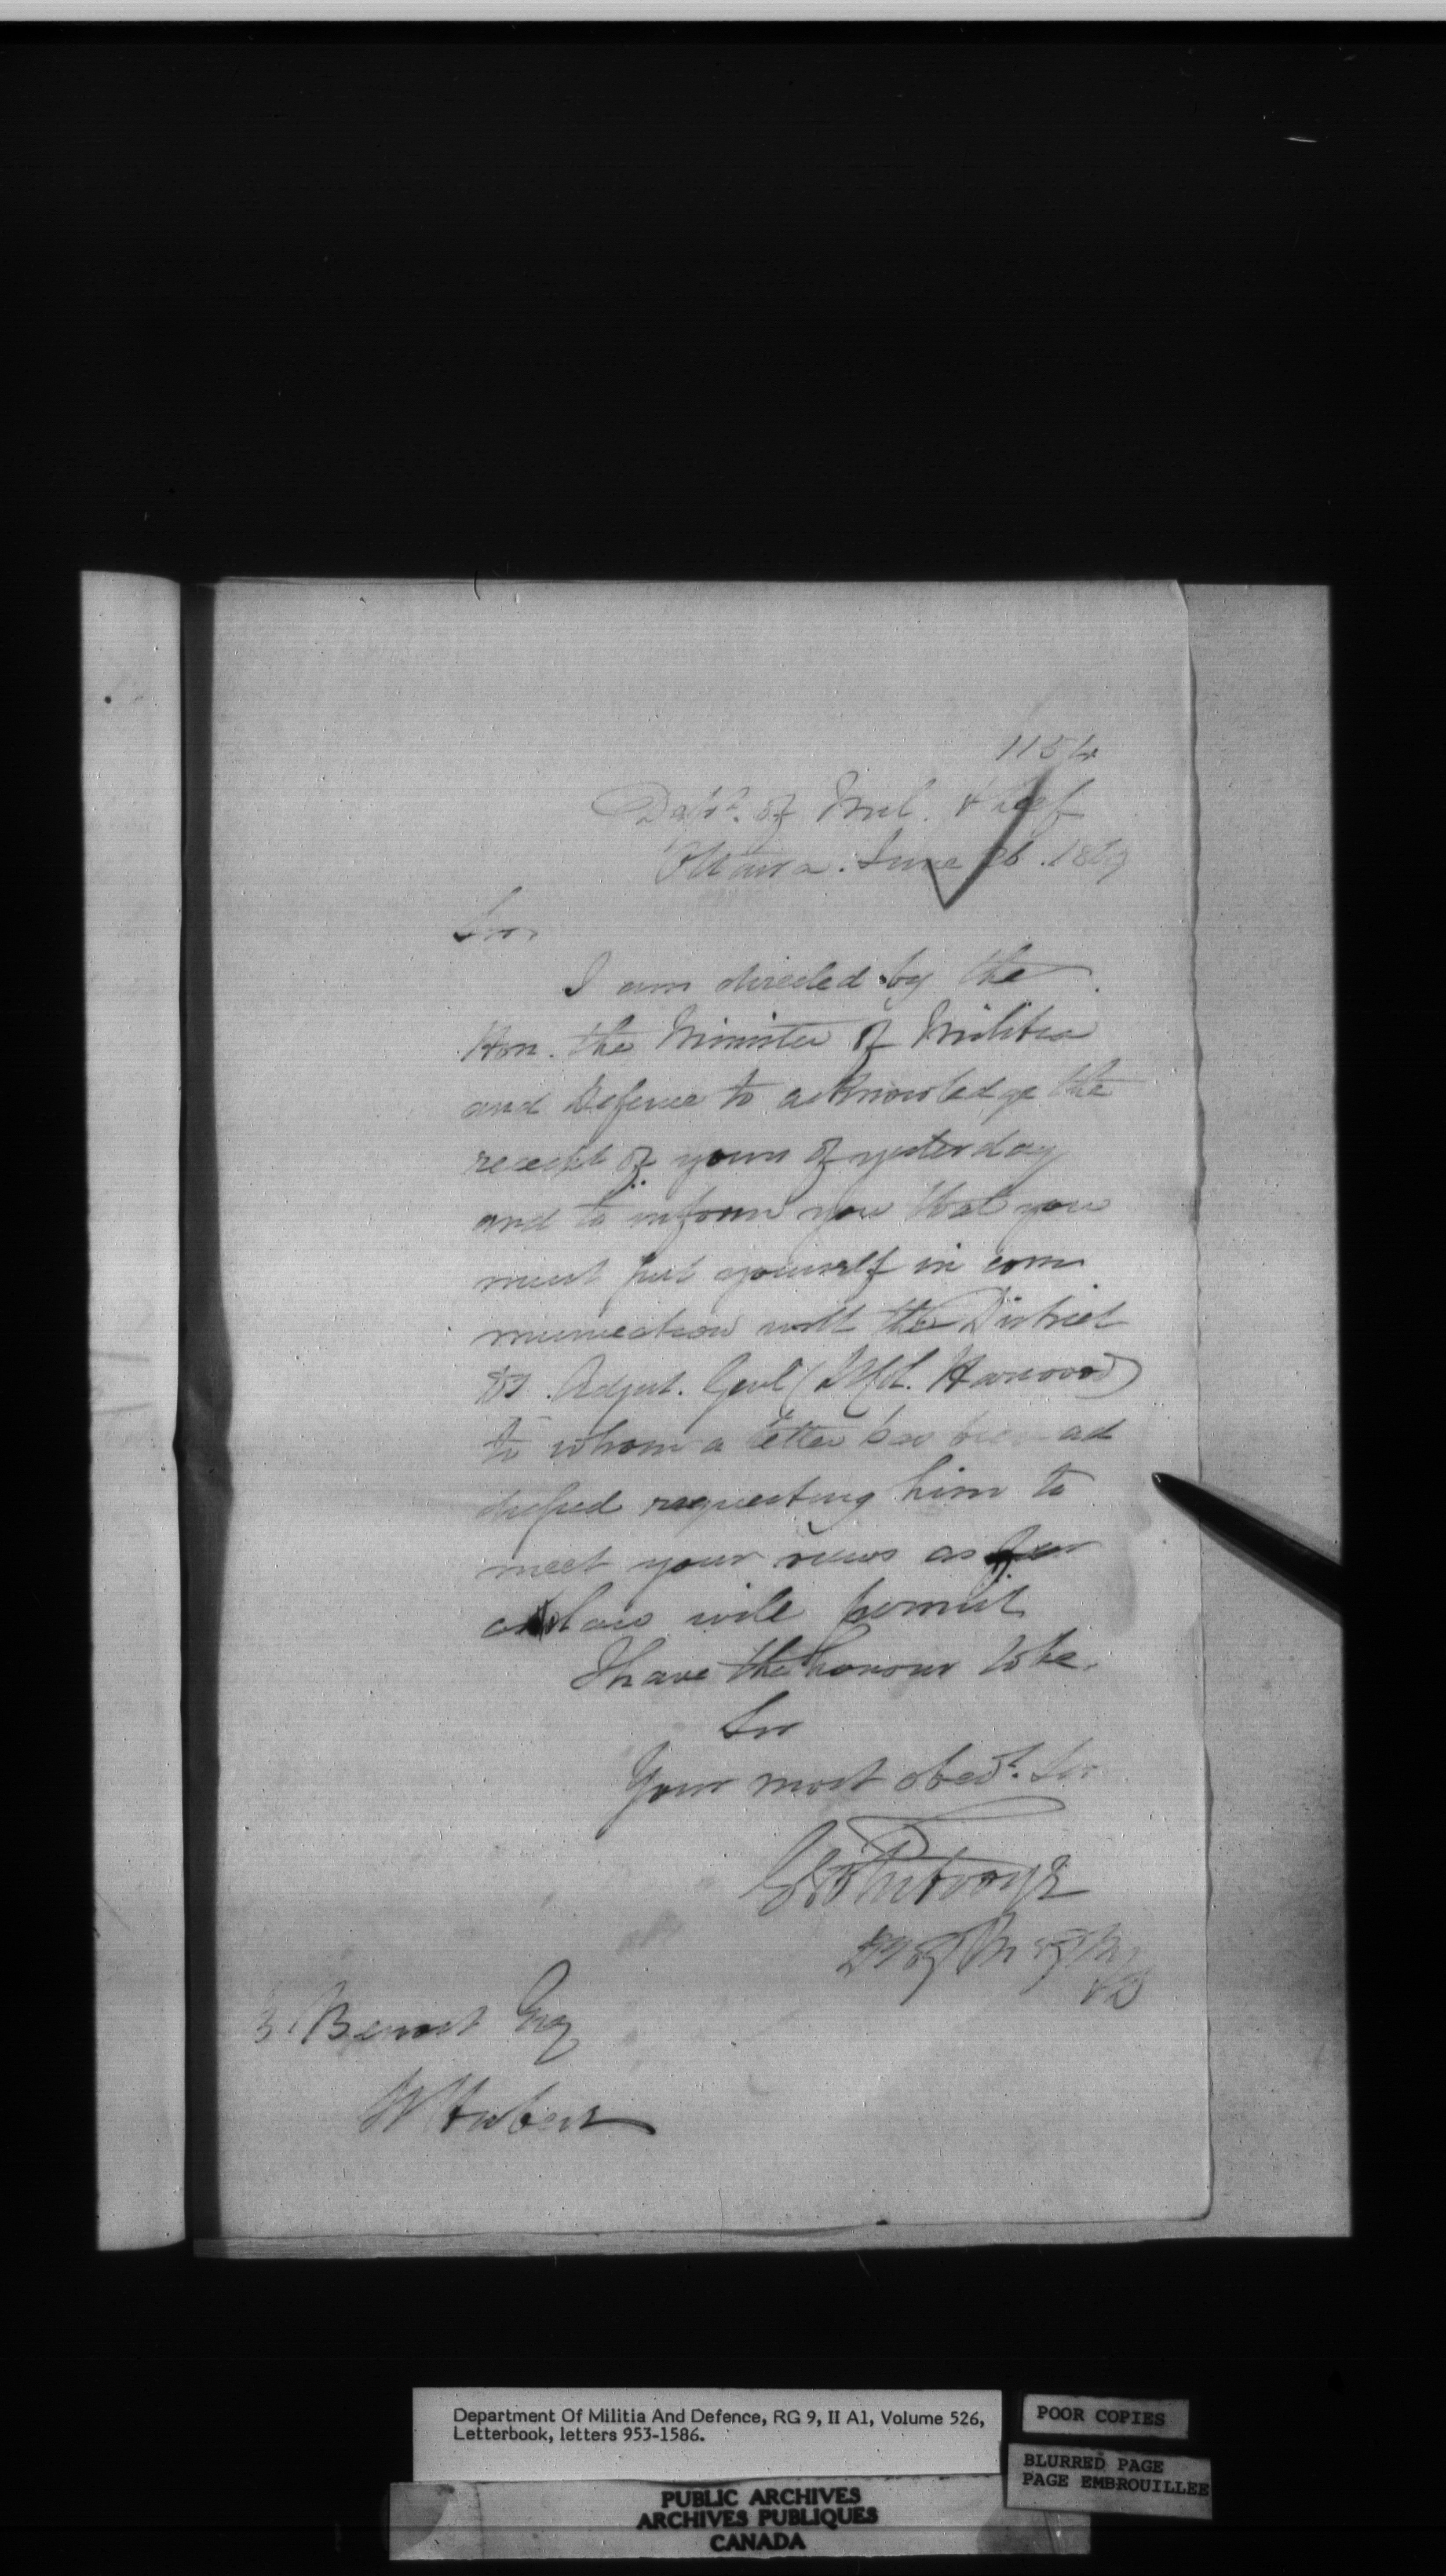 1154
Dept. of Mil. & Def
Ottawa. June 26. 1869
Sir
I am directed by the
Hon. the Minister of Militia
and Defence to acknowledge the
receipt of yours of yesterday
and to inform you that you
must put yourself in com
munication with the District
Dy. Adjut. Genl (Lt Col. Harwood)
to whom a letter has been ad
dressed requesting him to
meet your views as far
as law will permit
I have the honour to be.
Sir
Your most obedt. Ser
Benoit Esq
St Hubert
Department Of Militia And Defence, RG 9, II A1, Volume 526,
Letterbook, letters 953-1586.
POOR COPIES
BLURRED PAGE
PAGE EMBROUILLEE
PUBLIC ARCHIVES
ARCHIVES PUBLIQUES
CANADA